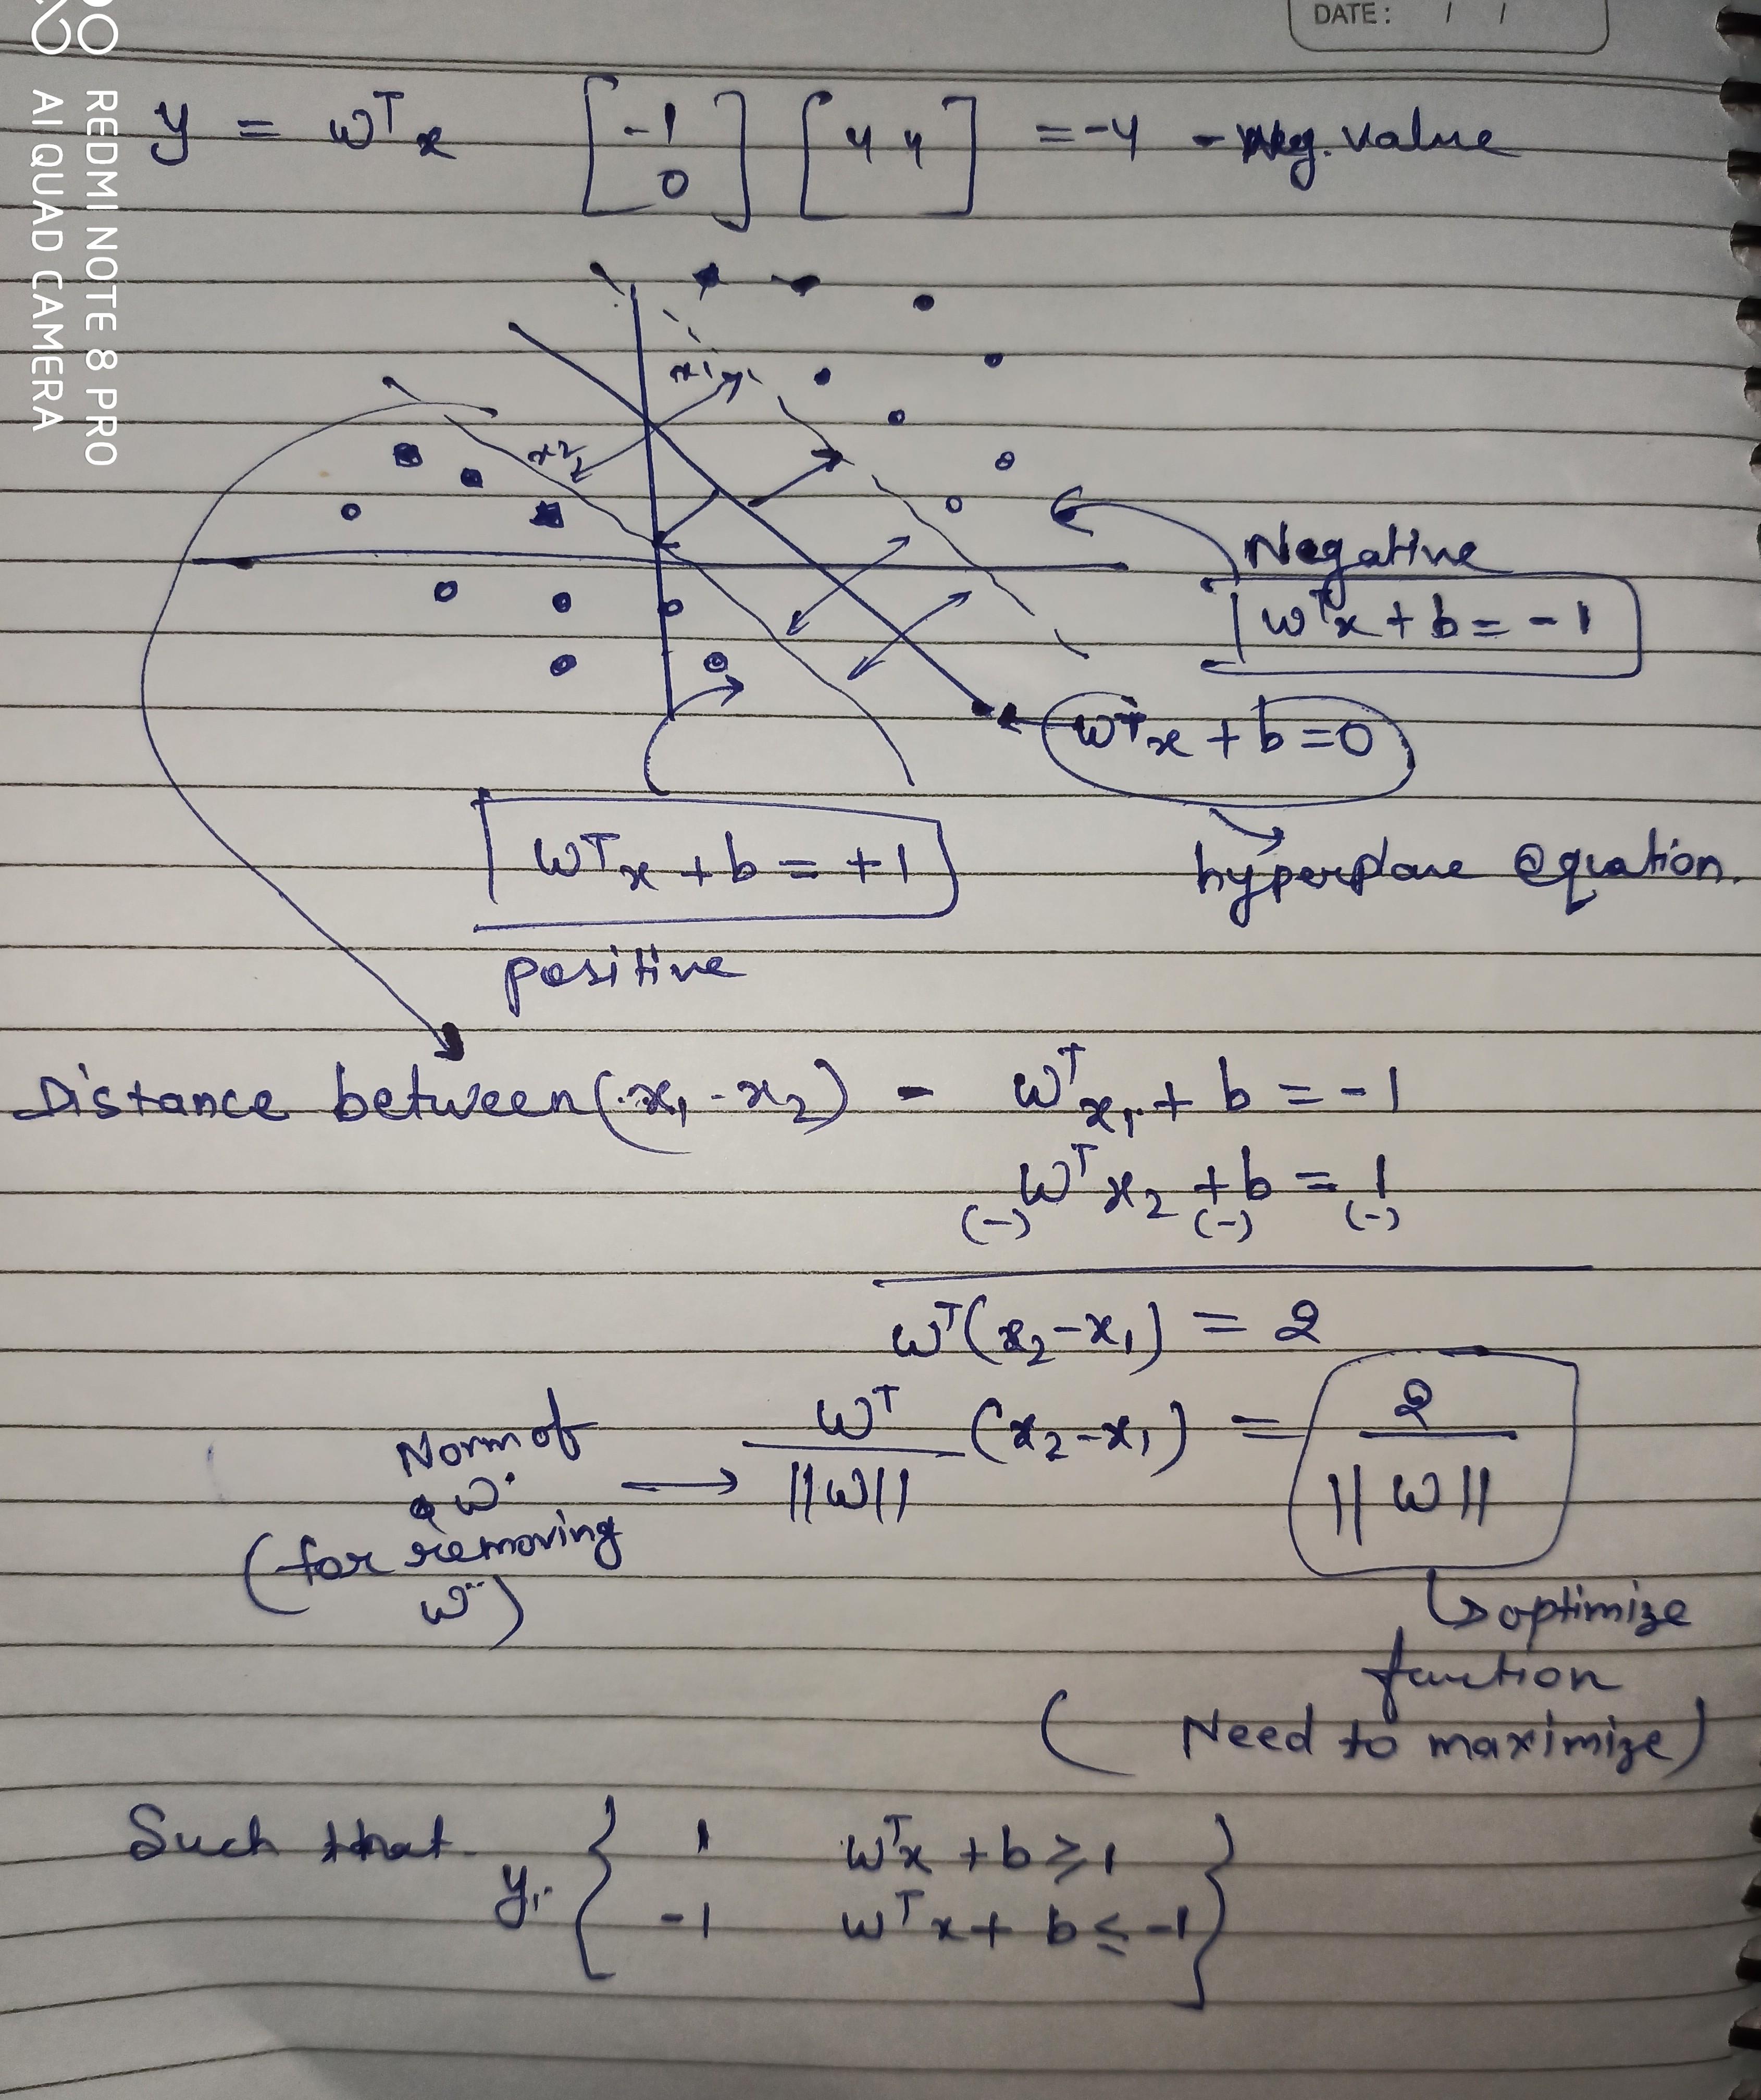 DATE: / /
REDMI NOTE 8 PRO
AI QUAD CAMERA
y = wᵀx [-1 0] [4 4] = -4 - neg. value
x1
x2
Negative
wᵀx + b = -1
wᵀx + b = 0
wᵀx + b = +1
hyperplane equation.
positive
Distance between (x₁ - x₂) - wᵀx₁ + b = -1
wᵀx₂ + b = 1
(-) (-) (-)
wᵀ(x₂-x₁) = 2
Norm of w → wᵀ/||w|| (x₂-x₁) = 2/||w||
(for removing w)
↳ optimize
function
(Need to maximize)
Such that yᵢ { 1 wᵀx + b ≥ 1
-1 wᵀx + b ≤ -1 }